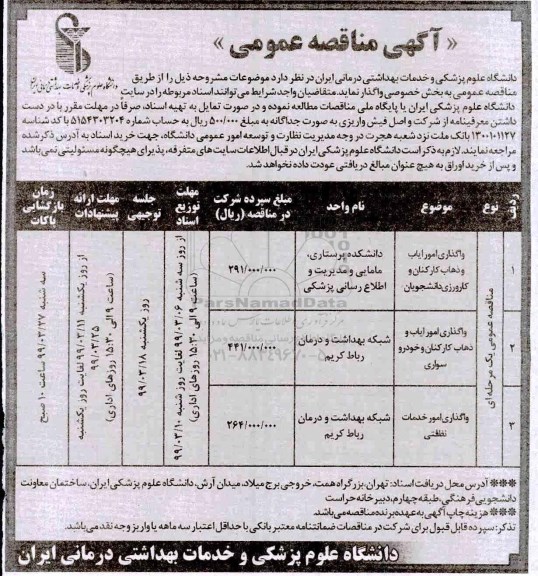 « آگهی مناقصه عمومی »
دانشگاه علوم پزشکی و خدمات بهداشتی درمانی ایران در نظر دارد موضوعات مشروحه ذیل را از طریق
مناقصه عمومی به بخش خصوصی واگذار نماید. متقاضیان واجد شرایط می‌توانند اسناد مربوطه را در سایت
دانشگاه علوم پزشکی ایران یا پایگاه ملی مناقصات مطالعه نموده و در صورت تمایل به تهیه اسناد، صرفاً در مهلت مقرر با در دست
داشتن معرفینامه از شرکت و اصل فیش واریزی به صورت جداگانه به مبلغ ۵۰۰/۰۰۰ ریال به حساب شماره ۵۱۵۴۳۰۳۲۰۴ با کد شناسه
۱۳۰۰۱۰۱۱۲۷ بانک ملت نزد شعبه هجرت در وجه مدیریت نظارت و توسعه امور عمومی دانشگاه، جهت خرید اسناد به آدرس ذکر شده
مراجعه نمایند. لازم به ذکر است دانشگاه علوم پزشکی ایران در قبال اطلاعات سایت‌های متفرقه، پذیرای هیچگونه مسئولیتی نمی‌باشد
و پس از خرید اوراق به هیچ عنوان مبالغ دریافتی عودت داده نخواهد شد.
ردیف
نوع
موضوع
نام واحد
مبلغ سپرده شرکت در مناقصه (ریال)
مهلت توزیع اسناد
جلسه توجیهی
مهلت ارائه پیشنهادات
زمان بازگشایی پاکات
مناقصه عمومی یک مرحله ای
۱
واگذاری امور ایاب
و ذهاب کارکنان و
کارورزی دانشجویان
دانشکده پرستاری،
مامایی و مدیریت و
اطلاع رسانی پزشکی
۲۹۱/۰۰۰/۰۰۰
۲
واگذاری امور ایاب و
ذهاب کارکنان و خودرو
سواری
شبکه بهداشت و درمان
رباط کریم
۴۴۱/۰۰۰/۰۰۰
۳
واگذاری امور خدمات
نظافتی
شبکه بهداشت و درمان
رباط کریم
۲۶۴/۰۰۰/۰۰۰
از روز سه شنبه ۹۹/۰۳/۰۶ لغایت روز شنبه ۹۹/۰۳/۱۰
(ساعت ۹ الی ۱۵:۳۰ روزهای اداری)
روز یکشنبه ۹۹/۰۳/۱۸
از روز یکشنبه ۹۹/۰۳/۱۱ لغایت روز یکشنبه
۹۹/۰۳/۲۵
(ساعت ۹ الی ۱۵:۳۰ روزهای اداری)
سه شنبه ۹۹/۰۳/۲۷ ساعت ۱۰ صبح
ParsNamadData
۰۲۱-۸۸۳۴۹۶۷۰-۵
*** آدرس محل دریافت اسناد: تهران، بزرگراه همت، خروجی برج میلاد، میدان آرش، دانشگاه علوم پزشکی ایران، ساختمان معاونت
دانشجویی فرهنگی، طبقه چهارم، دبیرخانه حراست
*** هزینه چاپ آگهی به عهده برنده مناقصه می‌باشد.
تذکر: سپرده قابل قبول برای شرکت در مناقصات ضمانتنامه معتبر بانکی با حداقل اعتبار سه ماهه یا واریز وجه نقد می‌باشد.
دانشگاه علوم پزشکی و خدمات بهداشتی درمانی ایران